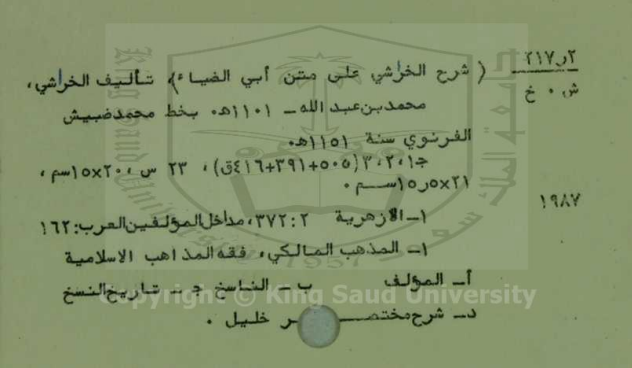 ٢ر٢١٧ ( شرح الخراشي على متن أبي الضياء )، تأليف الخراشي،
ش ٠ خ محمد بن عبد الله ـ ١١٠١هـ٠ بخط محمد ضبيش
الفرنوي سنة ١١٥١هـ٠
ج١،٢،٣(٥٠٥+٣٩١+٤١٦ق)، ٢٣ س ،٢٠×١٥سم ،
٢١×٥ر١٥ســم ٠
١٩٨٧
١ـ الأزهرية ٢ :٣٧٢،مداخل المؤلفين العرب:١٦٢
١ـ المذهب المالكي، فقه المذاهب الاسلامية
أـ المؤلف ب ـ الناسخ جـ ـ تاريخ النسخ
Copyright © King Saud University
د ـ شرح مختصـــر خليل ٠
1957